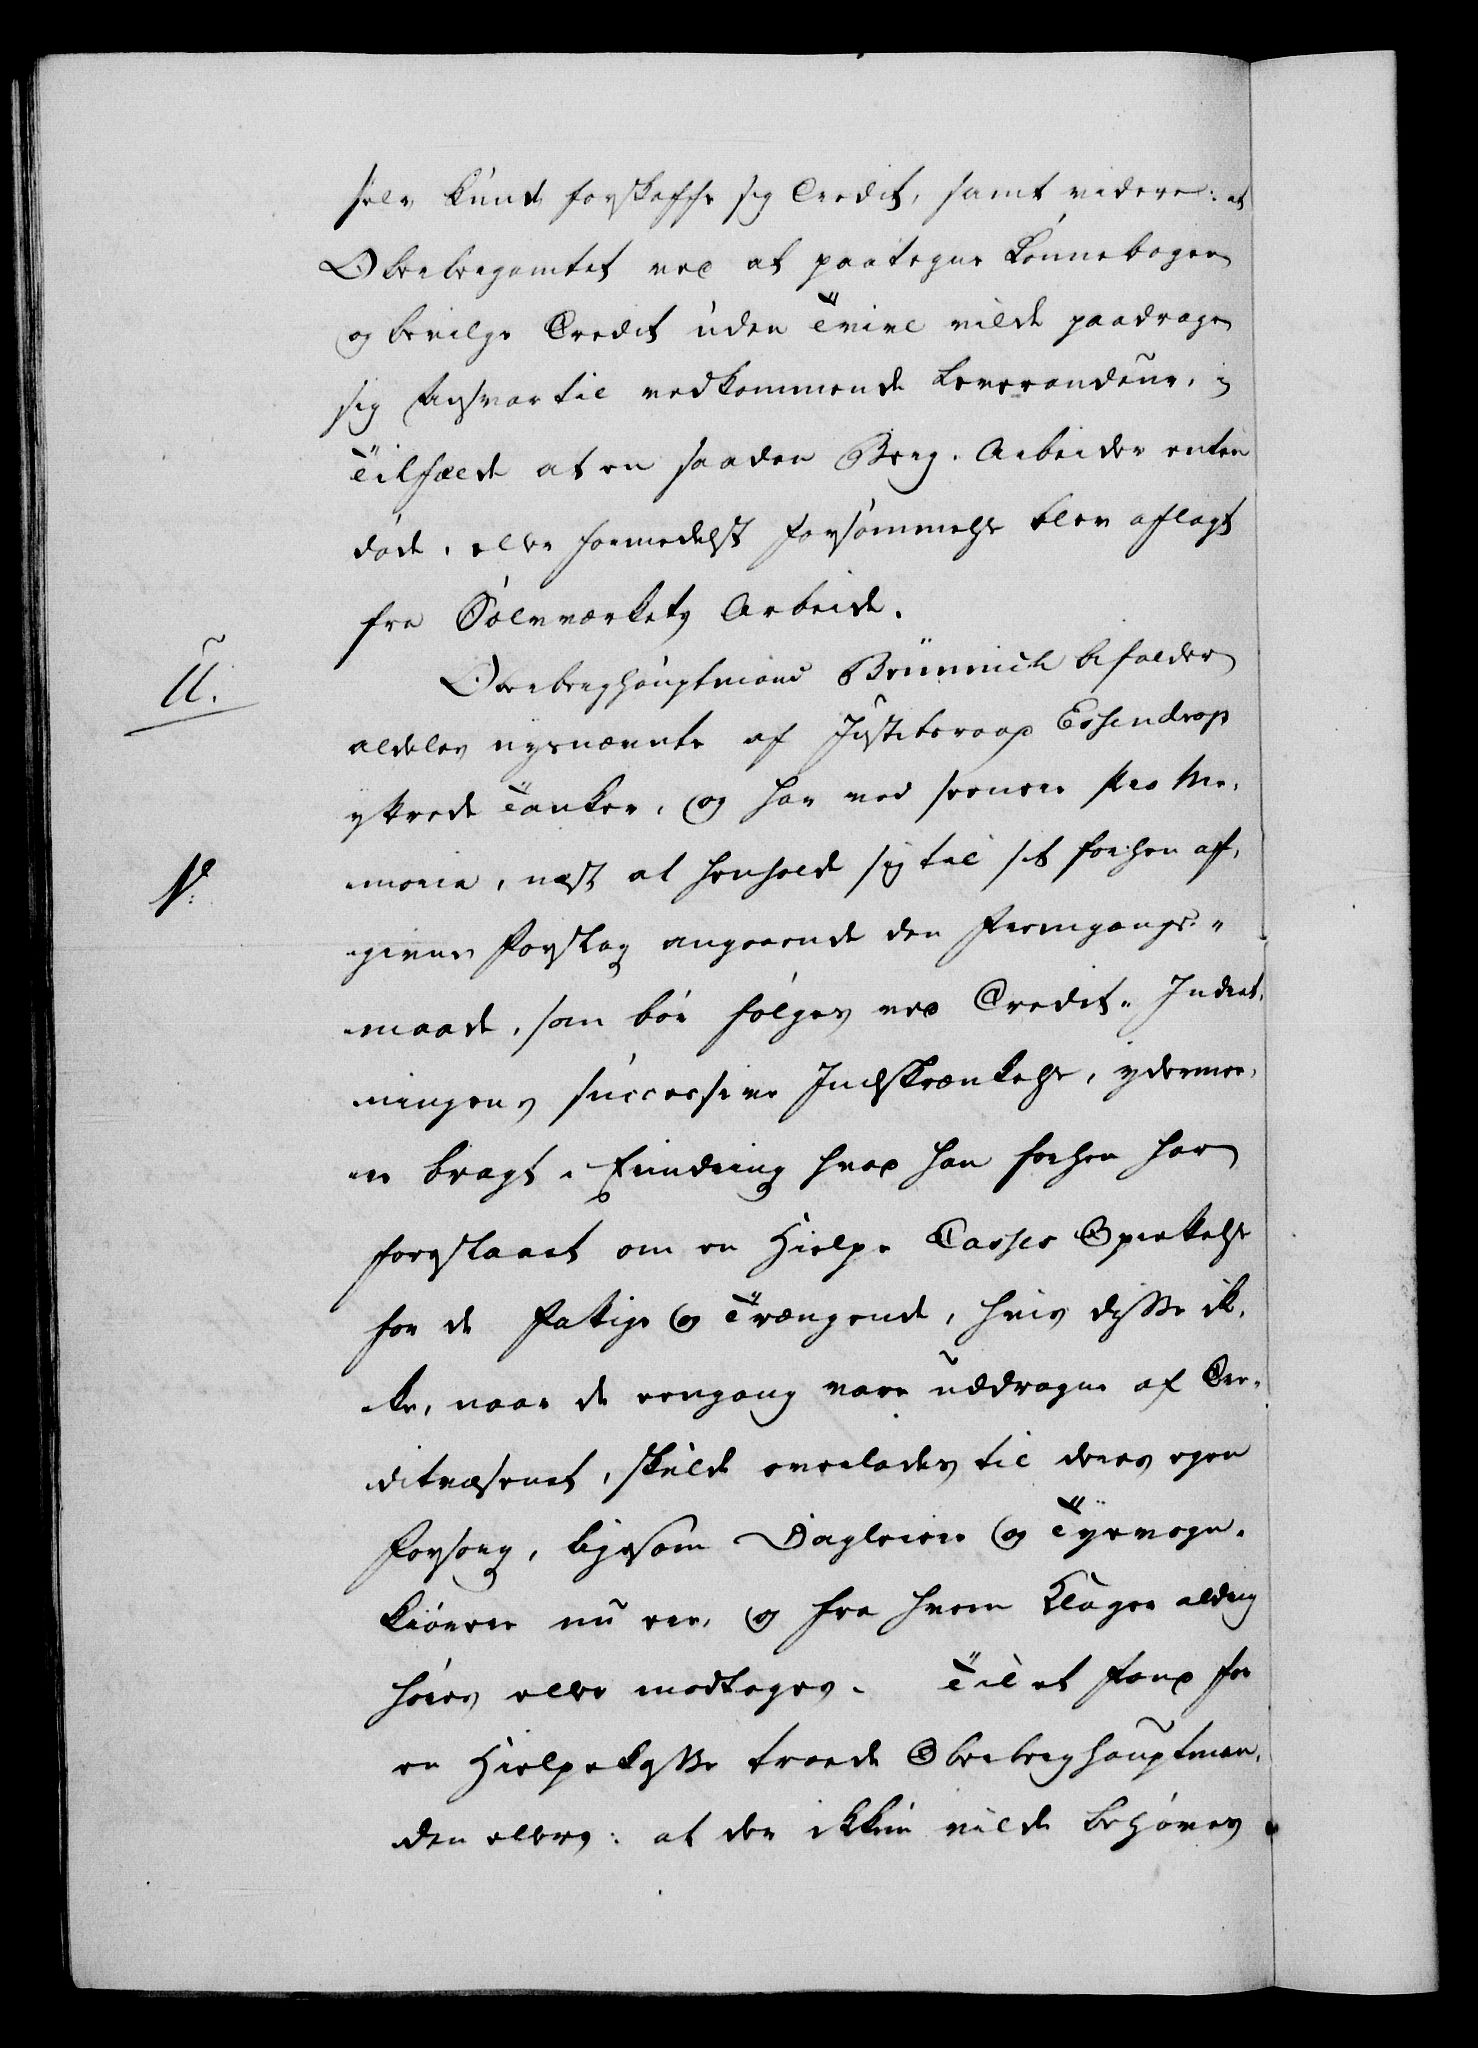 selv kunde forskaffe sig Credit, samt videre: at
Oberbergamtet ved at paategne Lønnebogen
og bevilge Credit uden Tvivl vilde paadrage
sig Ansvar til vedkommende Leverandeur, i
Tilfælde at en saadan Berg-Arbeider enten
døde, eller formedelst Forsømmelse blev aflagt
fra Sølvværkets Arbeide.
U.
Oberberghauptmand Brünnich bifalder
aldeles nysnævnte af Justitsraad Essendrop
yttrede Tanker, og har ved senere Pro Me-
V:
moria, næst at henholde sig til sit forhen af-
givne Forslag angaaende den Fremgangs-
maade, som bør følges ved Credit-Indret-
ningens successive Indskrænkelse, ydermee-
re bragt i Erindring hvad han forhen har
forslaaet om en Hielpe Casses Oprettelse
for de Fattige og Trængende, hvis disse ik-
ke, naar de eengang vare uddragne af Cre-
ditvæsenet, skulde overlades til deres egen
Forsorg, ligesom Dagleiere og Fyrvogn-
kiørere nu ere, og fra hvem Klager aldrig
høres eller modtages. Til et Fond for
en Hielpekasse troede Oberberghauptman-
den ellers: at der ikkun vilde behøves